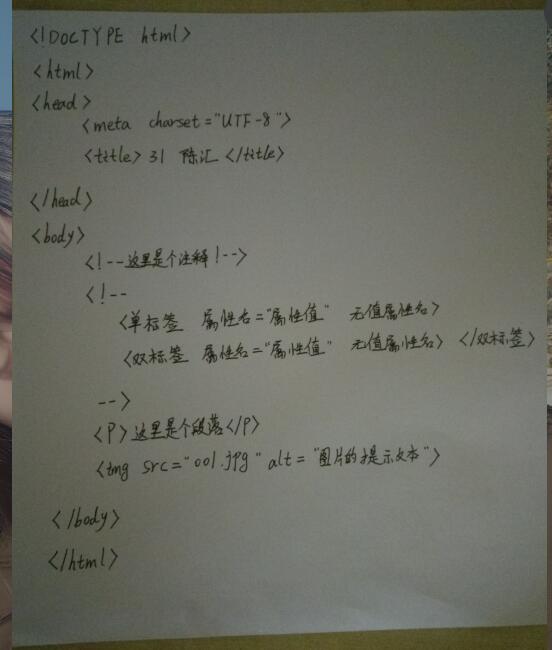 <!DOCTYPE html>
<html>
<head>
<meta charset="UTF-8">
<title>31 陈汇</title>
</head>
<body>
<!--这里是个注释!-->
<!--
<单标签 属性名="属性值" 无值属性名>
<双标签 属性名="属性值" 无值属性名></双标签>
-->
<P>这里是个段落</P>
<tmg src="001.jpg" alt="图片的提示文本">
</body>
</html>